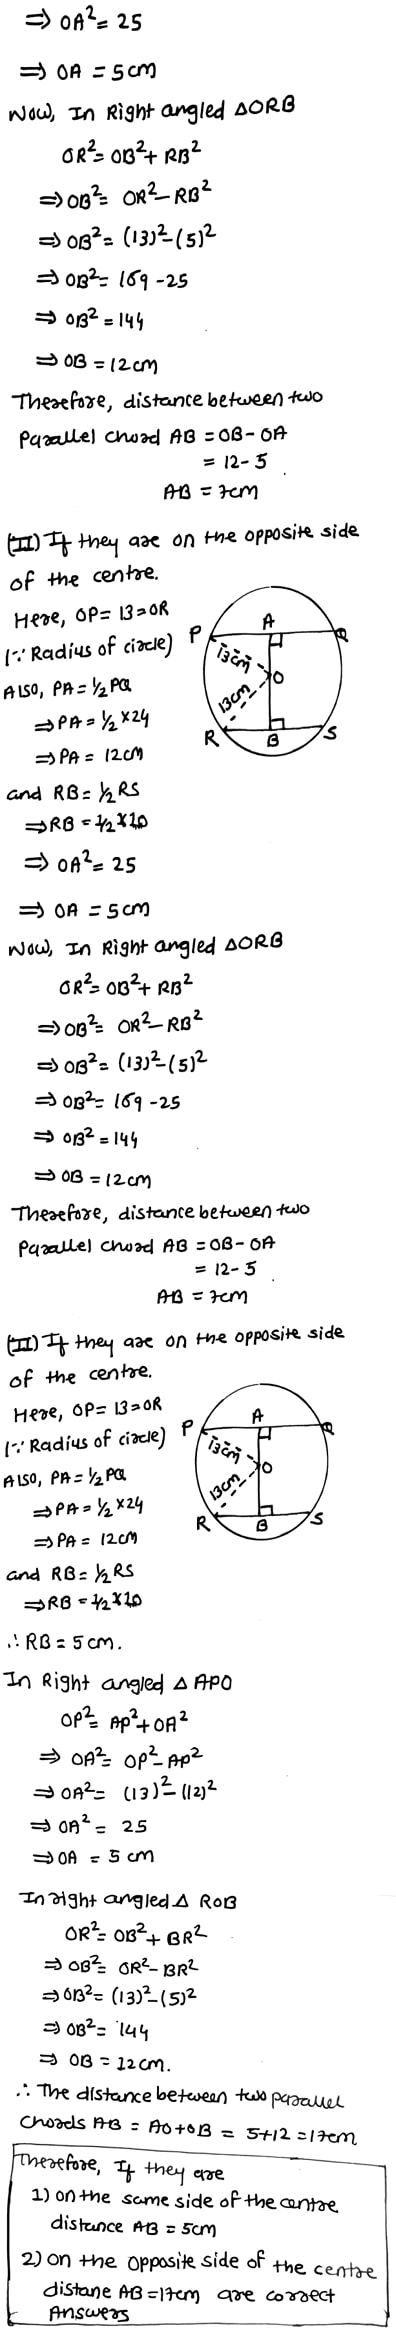 ⇒ OA² = 25
⇒ OA = 5cm
Now, In Right angled ΔORB
OR² = OB² + RB²
⇒ OB² = OR² - RB²
⇒ OB² = (13)² - (5)²
⇒ OB² = 169 - 25
⇒ OB² = 144
⇒ OB = 12cm
Therefore, distance between two
Parallel chord AB = OB - OA
= 12 - 5
AB = 7cm
(II) If they are on the opposite side
of the centre.
Here, OP = 13 = OR
(∵ Radius of circle)
Also, PA = 1/2 PQ
⇒ PA = 1/2 × 24
⇒ PA = 12cm
and RB = 1/2 RS
⇒ RB = 1/2 × 10
P A Q
13cm
O
13cm
R B S
⇒ OA² = 25
⇒ OA = 5cm
Now, In Right angled ΔORB
OR² = OB² + RB²
⇒ OB² = OR² - RB²
⇒ OB² = (13)² - (5)²
⇒ OB² = 169 - 25
⇒ OB² = 144
⇒ OB = 12cm
Therefore, distance between two
Parallel chord AB = OB - OA
= 12 - 5
AB = 7cm
(II) If they are on the opposite side
of the centre.
Here, OP = 13 = OR
(∵ Radius of circle)
Also, PA = 1/2 PQ
⇒ PA = 1/2 × 24
⇒ PA = 12cm
and RB = 1/2 RS
⇒ RB = 1/2 × 10
P A Q
13cm
O
13cm
R B S
∴ RB = 5cm.
In Right angled Δ APO
OP² = AP² + OA²
⇒ OA² = OP² - AP²
⇒ OA² = (13)² - (12)²
⇒ OA² = 25
⇒ OA = 5 cm
In right angled Δ ROB
OR² = OB² + BR²
⇒ OB² = OR² - BR²
⇒ OB² = (13)² - (5)²
⇒ OB² = 144
⇒ OB = 12cm.
∴ The distance between two parallel
Chords AB = AO + OB = 5+12 = 17cm
Therefore, If they are
1) on the same side of the centre
distance AB = 5cm
2) on the opposite side of the centre
distane AB = 17cm are correct
Answers